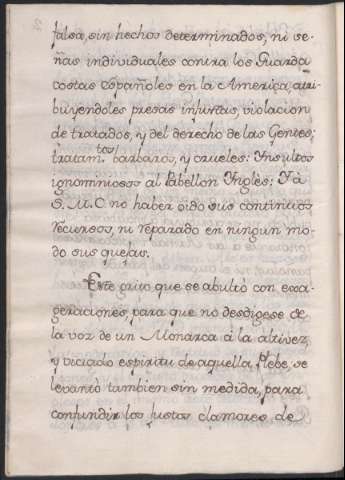 falsa, sin hechos determinados, ni se-
ñas individuales contra los Guarda
costas Españoles en la America, atri
buyendoles presas injustas, violacion
de tratados, y del derecho de las Gentes;
tratam.tos barbaros, y crueles: Ynsultos
ignominiosos al Pabellon Ynglès: Y à
S. M. C. no haber oido sus continuos
recursos, ni reparado en ningun mo-
do sus quejas.
Este grito que se abultò con exa-
geraciones, para que no desdigese de
la voz de un Monarca à la altivez,
y viciado espiritu de aquella Plebe, se
levantò tambien sin medida, para
confundir los justos clamores de